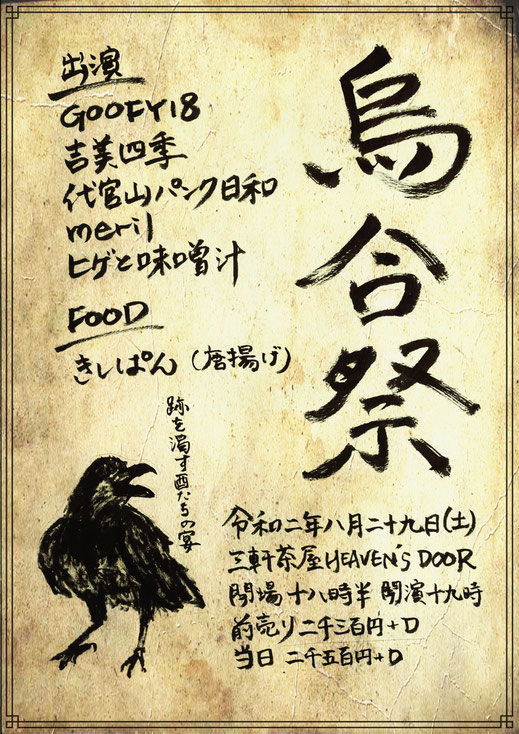 烏合祭
出演
GOOFY18
吉美四季
代官山パンク日和
meril
ヒゲと味噌汁
FOOD
きしぱん（唐揚げ）
跡を濁す酉たちの宴
令和二年八月二十九日(土)
三軒茶屋HEAVEN'S DOOR
開場十八時半 開演十九時
前売り二千三百円+D
当日 二千五百円+D